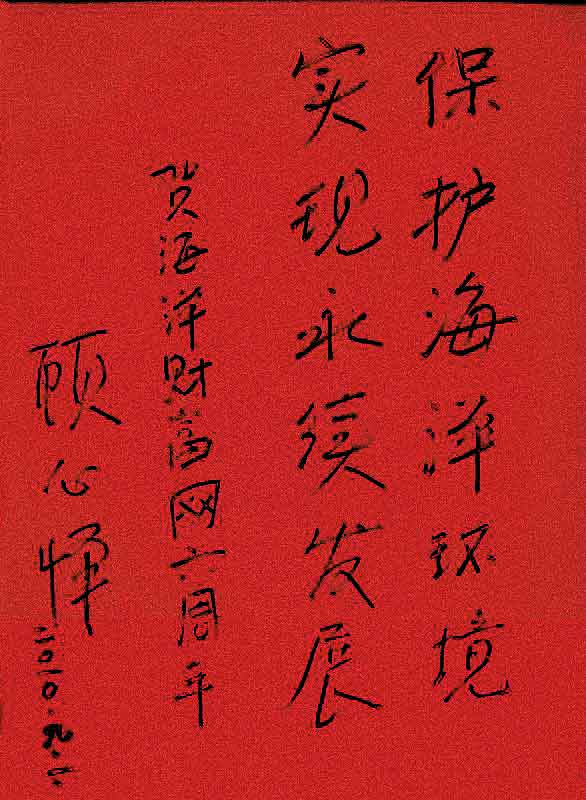 保护海洋环境
实现永续发展
贺海洋财富网六周年
顾心怿
二〇一〇.九.